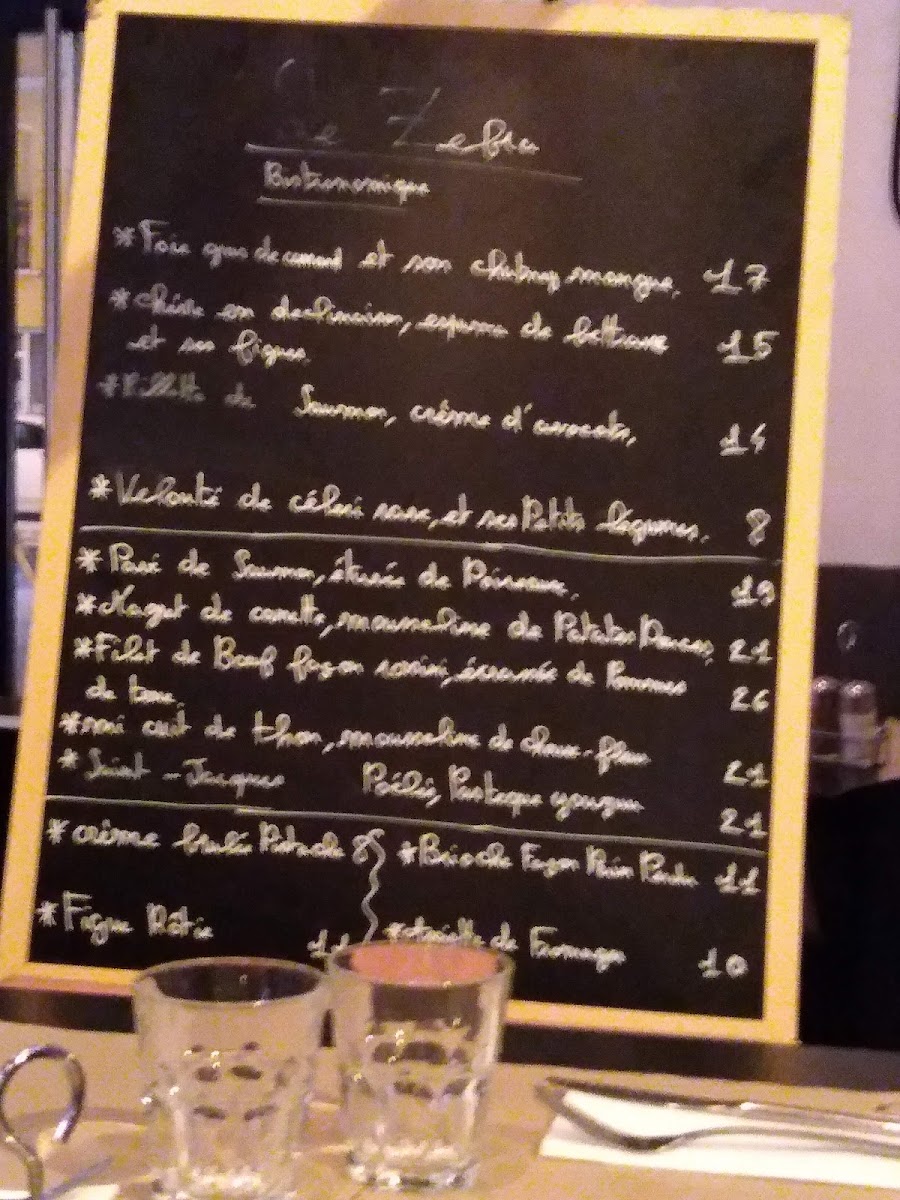 Le Zebra
Bistronomique
*Foie gras de canard et son chutney mangue, 17
*Chèvre en declinaison, espuma de betterave 15
et ses figues.
*Rillette de Saumon, crème d'avocats, 14
*Velouté de céleri rave, et ses Petits légumes, 8
*Pavé de Saumon, étuvée de Poireaux, 19
*Magret de canette, mousseline de Patates Douces, 21
*Filet de Bœuf façon rossini, écrasée de Pommes
de terre 26
*mi cuit de thon, mousseline de choux-fleur 21
*Saint-Jacques Poélés, yuzu 21
*crème brulée Pistache 8 *Brioche Façon Pain Perdu 11
*Figue Rôtie 11 *Assiette de Fromages 10